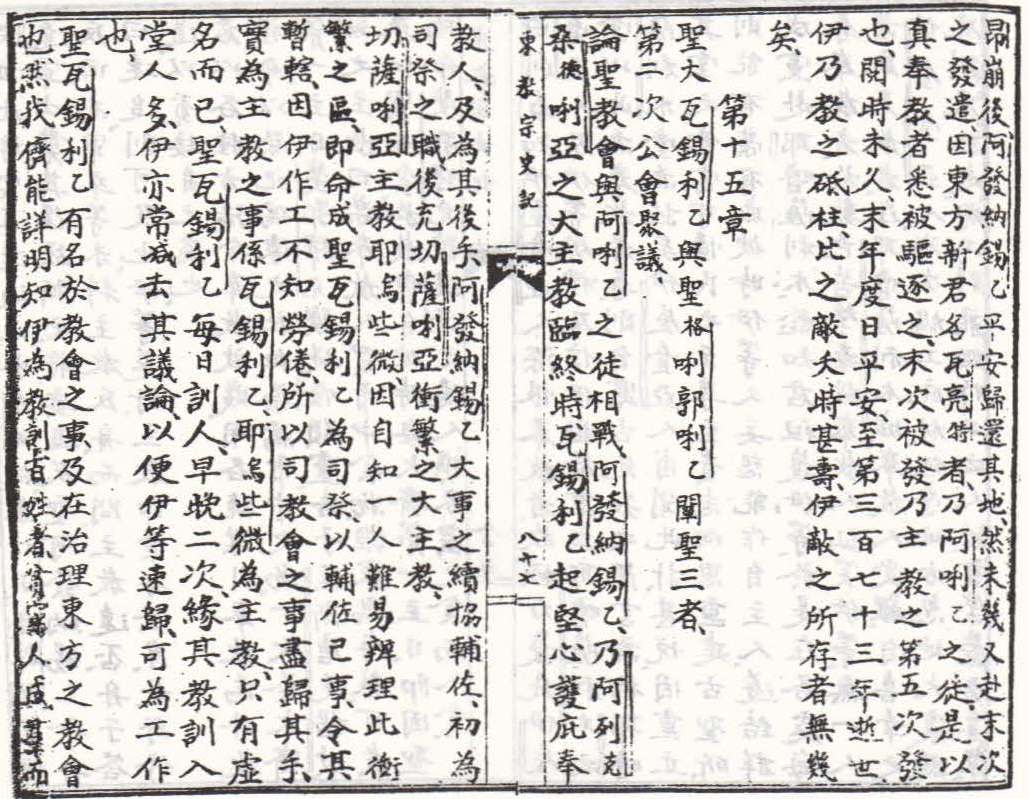 崩後阿發納錫乙平安歸還其地、然未幾又赴末次
之發遣因東方新君名瓦亮特者、乃阿唎乙之徒、是以
真奉教者悉被驅逐之、末次被發乃主教之第五次發
也、閱時未久末年度日平安至第三百七十三年逝世、
伊乃教之砥柱、比之敵大時甚壽伊敵之所存者無幾
矣、
第十五章
聖大瓦錫利乙與聖格唎郭唎乙闡聖三者、
第二次公會聚議、
論聖教會與阿唎乙之徒相戰、阿發納錫乙、乃阿列克
桑德唎亞之大主教臨終時、瓦錫利乙起堅心護庇奉
東教宗史記 八十七
教人、及為其後手、阿發納錫乙大事、續協輔佐、初為
司祭之職、後充切薩唎亞衝繁之大主教、
切薩唎亞主教耶烏些微因自知一人難易辦理此衝
繁之區、即命成聖瓦錫利乙為司祭、以輔佐已事、令其
暫轄、因伊作工不知勞倦、所以司教會之事盡歸其手、
實為主教之事係瓦錫利乙、耶烏些微為主教、只有虛
名而已、聖瓦錫利乙每日訓人、早晚二次、緣其教訓入
堂、多伊亦常減去其議論、以便伊等速歸、可為工作
也、
聖瓦錫利乙有名於教會之事、及在治理東方之教會
也、然我儕能詳明知伊為教訓百姓者、